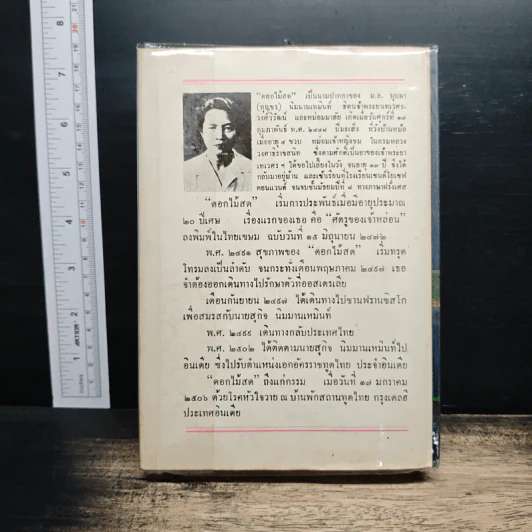 "ดอกไม้สด" เป็นนามปากกาของ ม.ล. บุบผา
(กุญชร) นิมมานเหมินท์ ธิดาเจ้าพระยาเทเวศร-
วงศ์วิวัฒน์ และหม่อมมาลัย เกิดเมื่อวันศุกร์ที่ ๑๗
กุมภาพันธ์ พ.ศ. ๒๔๔๘ ปีมะเส็ง ที่วังบ้านหม้อ
เมื่ออายุ ๔ ขวบ หม่อมเจ้าหญิงขม ในกรมหลวง
วงศาธิราชสนิท ซึ่งตามศักดิ์เป็นอาของเจ้าพระยา
เทเวศร ฯ ได้ขอไปเลี้ยงในวัง จนอายุ ๑๓ ปี จึงได้
กลับมาอยู่บ้าน และเข้าเรียนที่โรงเรียนเซนต์โยเซฟ
คอนแวนต์ จนจบชั้นมัธยมปีที่ ๘ ทางภาษาฝรั่งเศส
"ดอกไม้สด" เริ่มการประพันธ์เมื่อมีอายุประมาณ
๒๐ ปีเศษ เรื่องแรกของเธอ คือ "ศัตรูของเจ้าหล่อน"
ลงพิมพ์ในไทยเขษม ฉบับวันที่ ๑๕ มิถุนายน ๒๔๗๒
พ.ศ. ๒๔๙๑ สุขภาพของ "ดอกไม้สด" เริ่มทรุด
โทรมลงเป็นลำดับ จนกระทั่งเดือนพฤษภาคม ๒๔๙๗ เธอ
จำต้องออกเดินทางไปรักษาตัวที่ออสเตรเลีย
เดือนกันยายน ๒๔๙๗ ได้เดินทางไปซานฟรานซิสโก
เพื่อสมรสกับนายสุกิจ นิมมานเหมินท์
พ.ศ. ๒๔๙๙ เดินทางกลับประเทศไทย
พ.ศ. ๒๕๐๒ ได้ติดตามนายสุกิจ นิมมานเหมินท์ไป
อินเดีย ซึ่งไปรับตำแหน่งเอกอัครราชทูตไทย ประจำอินเดีย
"ดอกไม้สด" ถึงแก่กรรม เมื่อวันที่ ๑๗ มกราคม
๒๕๐๖ ด้วยโรคหัวใจวาย ณ บ้านพักสถานทูตไทย กรุงเดลฮี
ประเทศอินเดีย